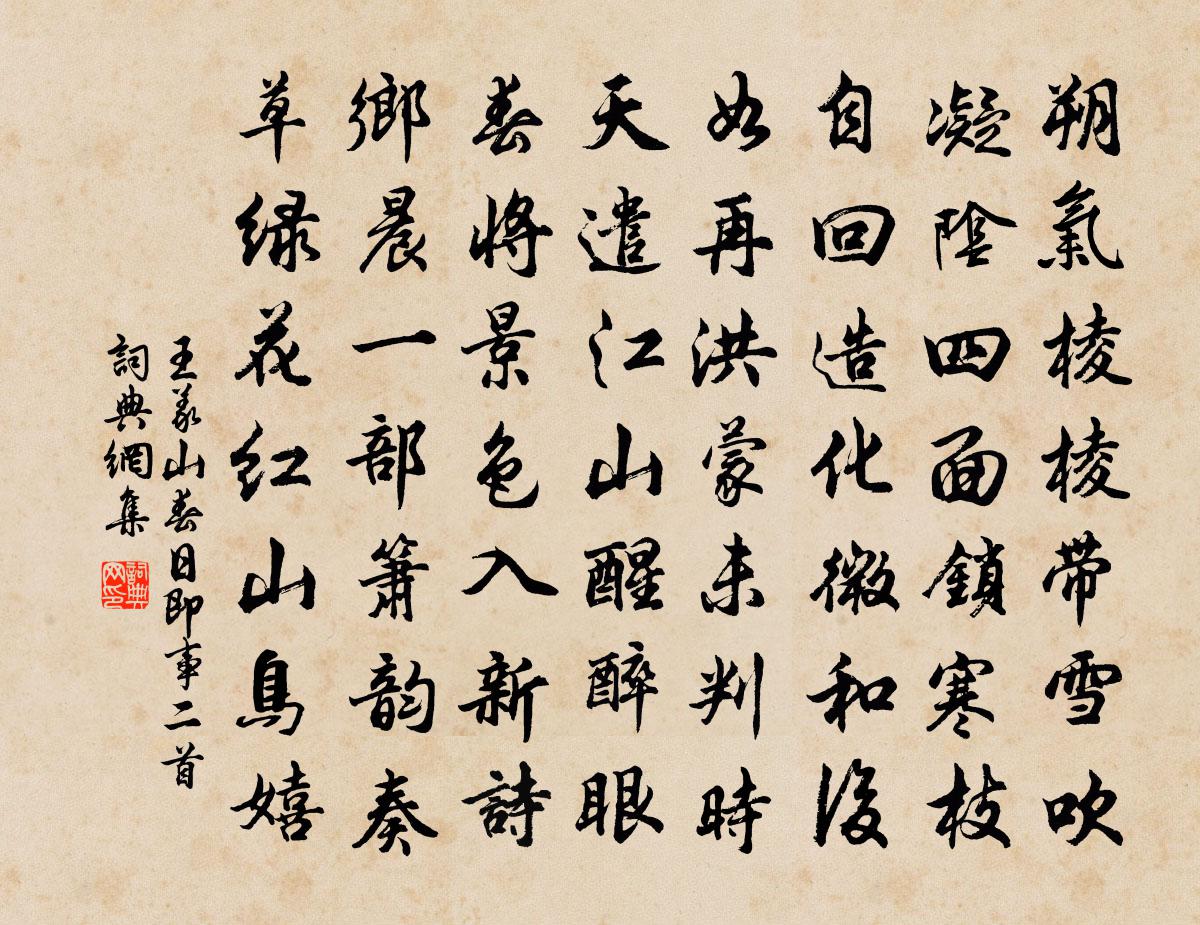 朔氣棱棱带雪吹
凝陰四面鎖寒枝
自回造化微和後
如再洪蒙未判時
天遣江山醒醉眼
春將景色入新詩
鄉晨一部箫韵奏
草绿花红山鳥嬉
王義山春日即事二首
詞典網集
詞典网印